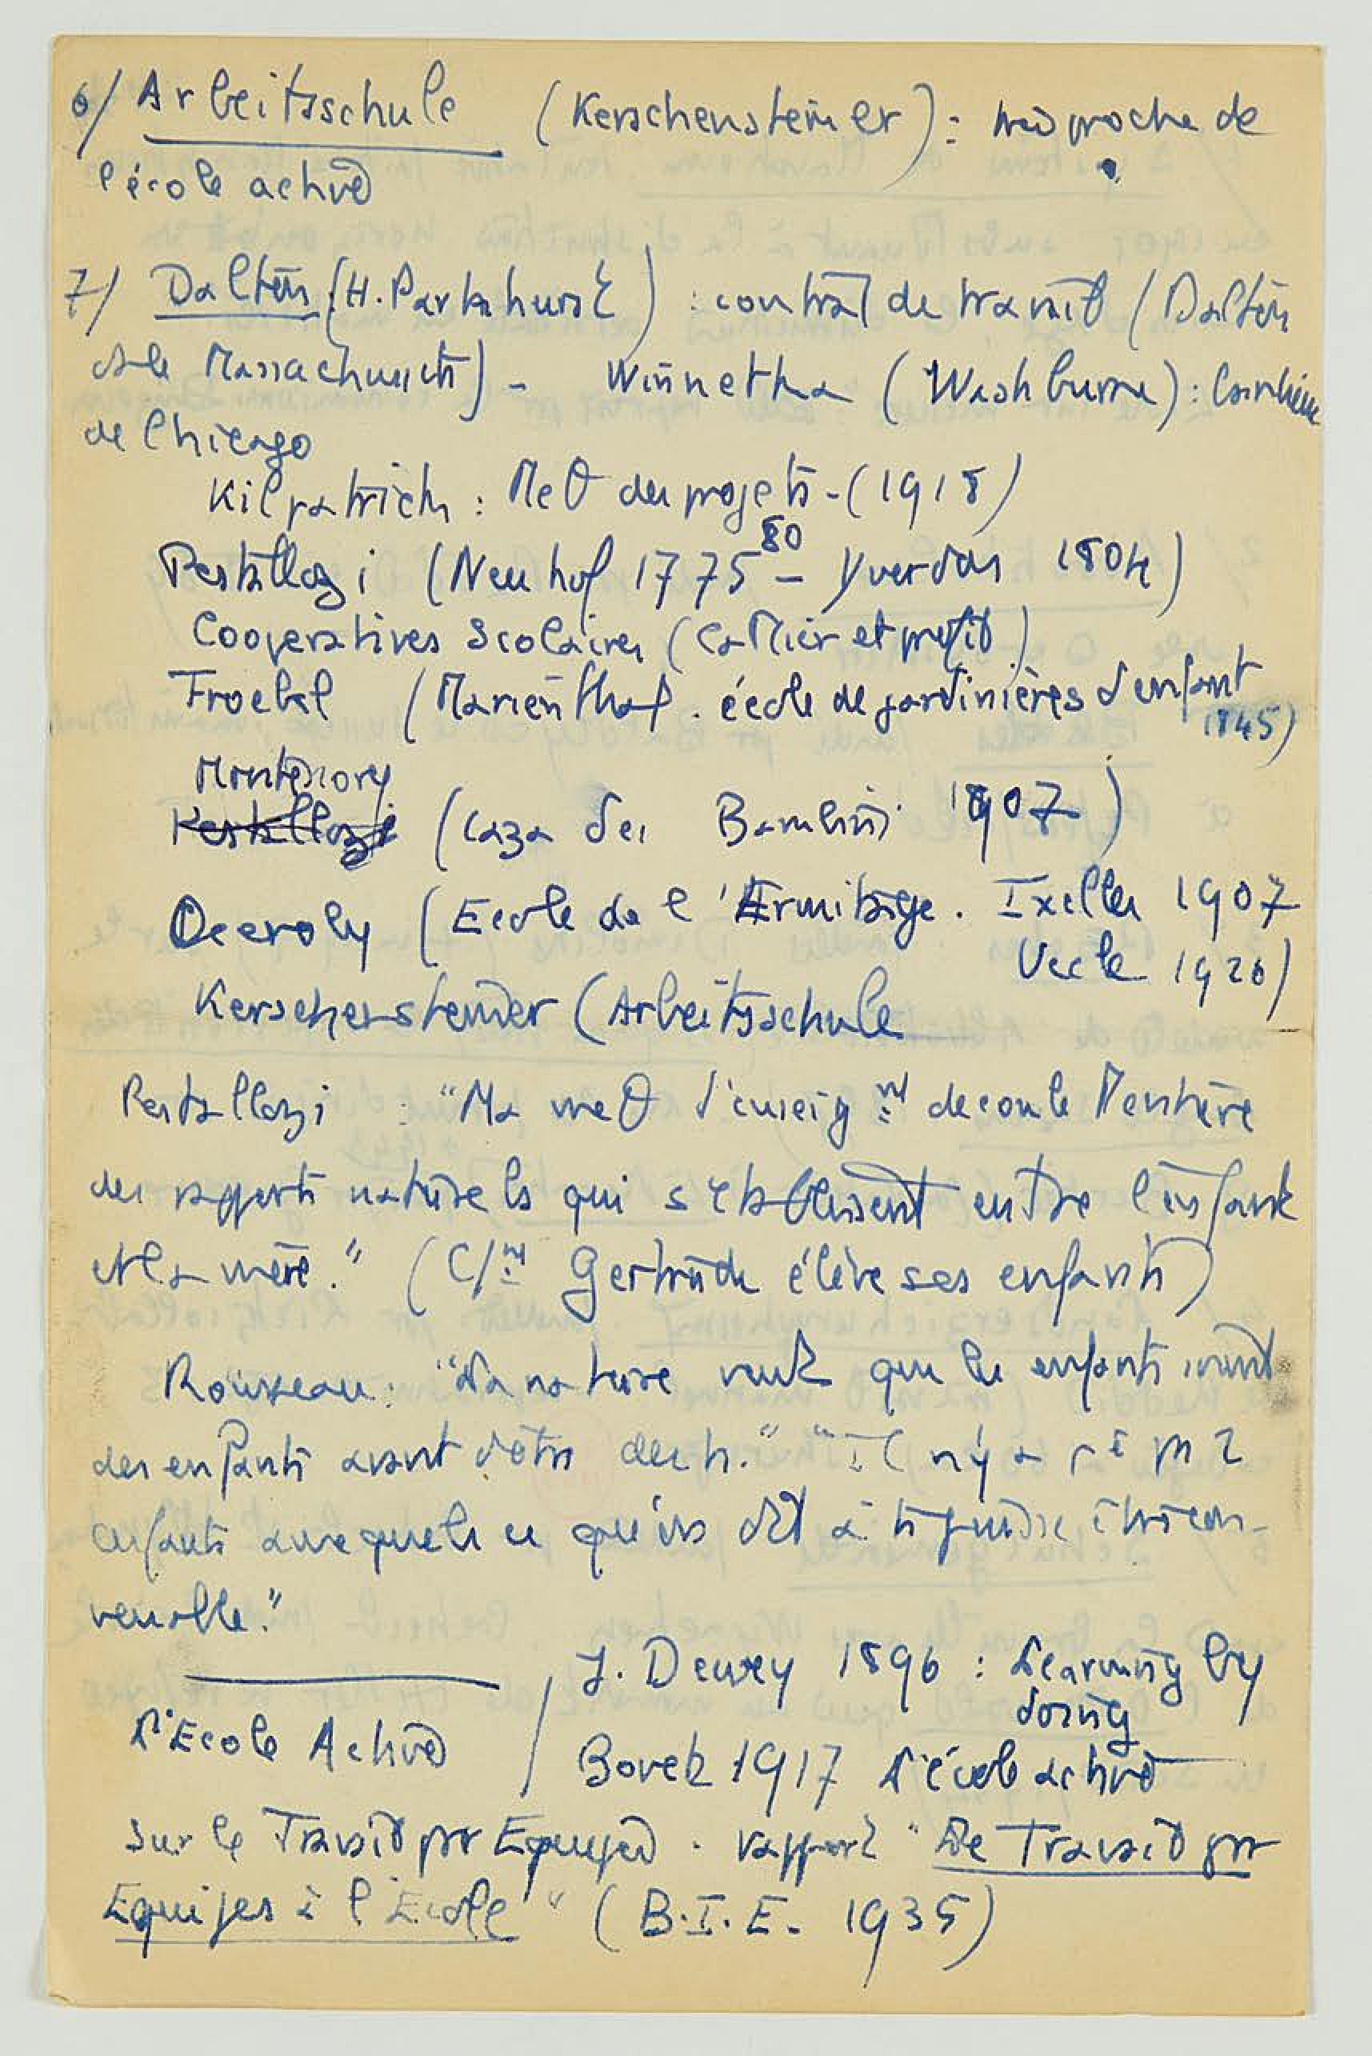 6/ Arbeitsschule (Kerschensteiner) : très proche de
l'école active
7/ Dalton (H. Parkhurst) : contrat de travail (Dalton
ds le Massachusetts) - Winnetka (Washburne) : banlieue
de Chicago
Kilpatrick : Méθ des projets - (1918)
Pestallozi (Neuhof 1775 80 - Yverdon 1804)
Cooperatives Scolaires (Cattier et profit)
Froebel (Marienthal. école de jardinières d'enfant
1845)
Montessory
Pestallozi (Caza dei Bambini 1907)
Decroly (Ecole de l'Ermitage. Ixelles 1907
Uccle 1926)
Kerschensteiner (Arbeitsschule
Pestallozi : "Ma méθ d'enseignt découle entière
des rapports naturels qui s'établissent entre l'enfant
et la mère." (C/nt Gertrude élève ses enfants)
Rousseau : "La nature veut que les enfants soient
des enfants avant d'être des h." "Il n'y a
enfants avec quels ce qu'on doit
venable."
J. Dewey 1896 : Learning by
doing
L'Ecole Active / Bovet 1917 L'école active
Sur le Travail par Equipes . rapport "Le Travail par
Equipes à l'Ecole" (B.I.E. 1935)